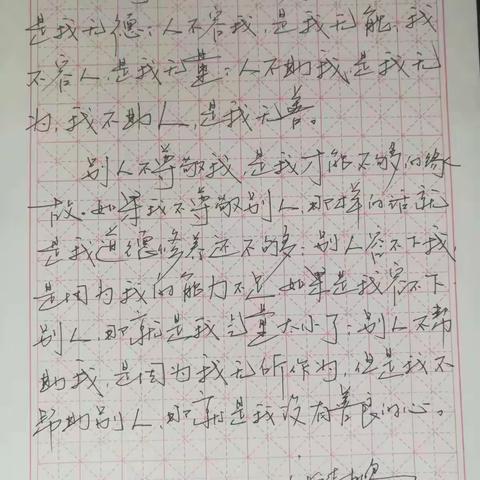 是我无德；人不容我，是我无能，我
不容人，是我无量；人不助我，是我无
为，我不助人，是我无善。
别人不尊敬我，是我才能不够的缘
故。如果我不尊敬别人，那样的话就
是我道德修养还不够；别人容不下我，
是因为我的能力不足，如果是我容不下
别人，那就是我气量太小了；别人不帮
助我，是因为我无所作为，但是我不
帮助别人，那就是我没有善良的心。